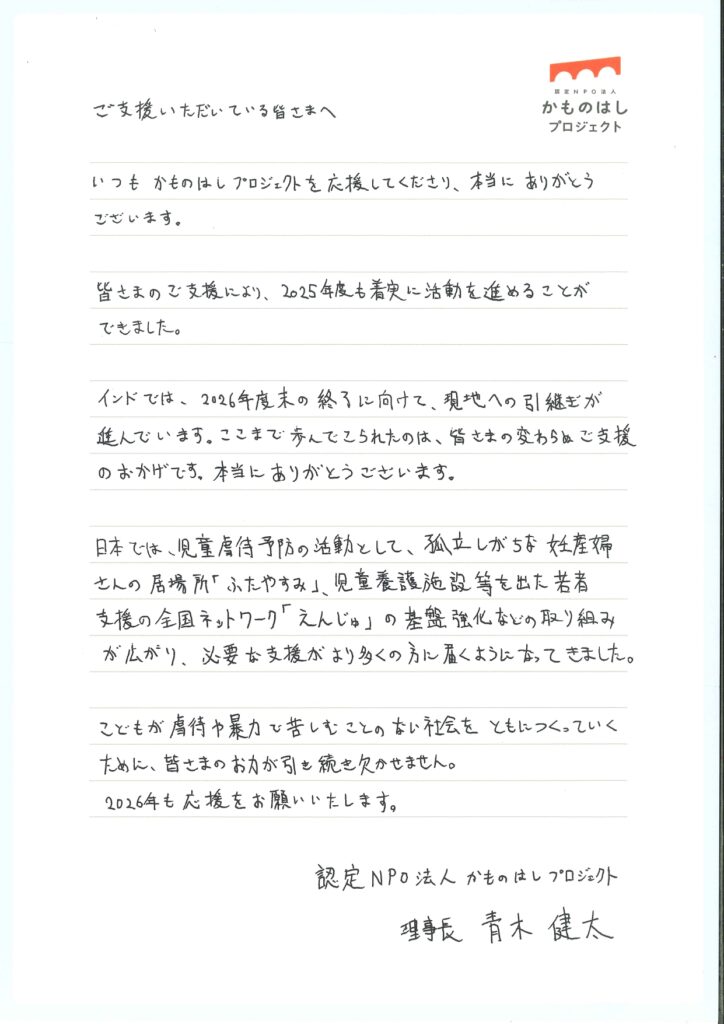 認定NPO法人
かものはし
プロジェクト
ご支援いただいている皆さまへ
いつも かものはしプロジェクトを応援してくださり、本当に ありがとう
ございます。
皆さまのご支援により、2025年度も着実に活動を進めることが
できました。
インドでは、2026年度末の終了に向けて、現地への引継ぎが
進んでいます。ここまで歩んでこられたのは、皆さまの変わらぬご支援
のおかげです。本当にありがとうございます。
日本では、児童虐待予防の活動として、孤立しがちな妊産婦
さんの居場所「ふたやすみ」、児童養護施設等を出た若者
支援の全国ネットワーク「えんじゅ」の基盤強化などの取り組み
が広がり、必要な支援がより多くの方に届くようになってきました。
こどもが虐待や暴力で苦しむことのない社会を ともにつくっていく
ために、皆さまのお力が引き続き欠かせません。
2026年も応援をお願いいたします。
認定NPO法人 かものはしプロジェクト
理事長 青木 健太